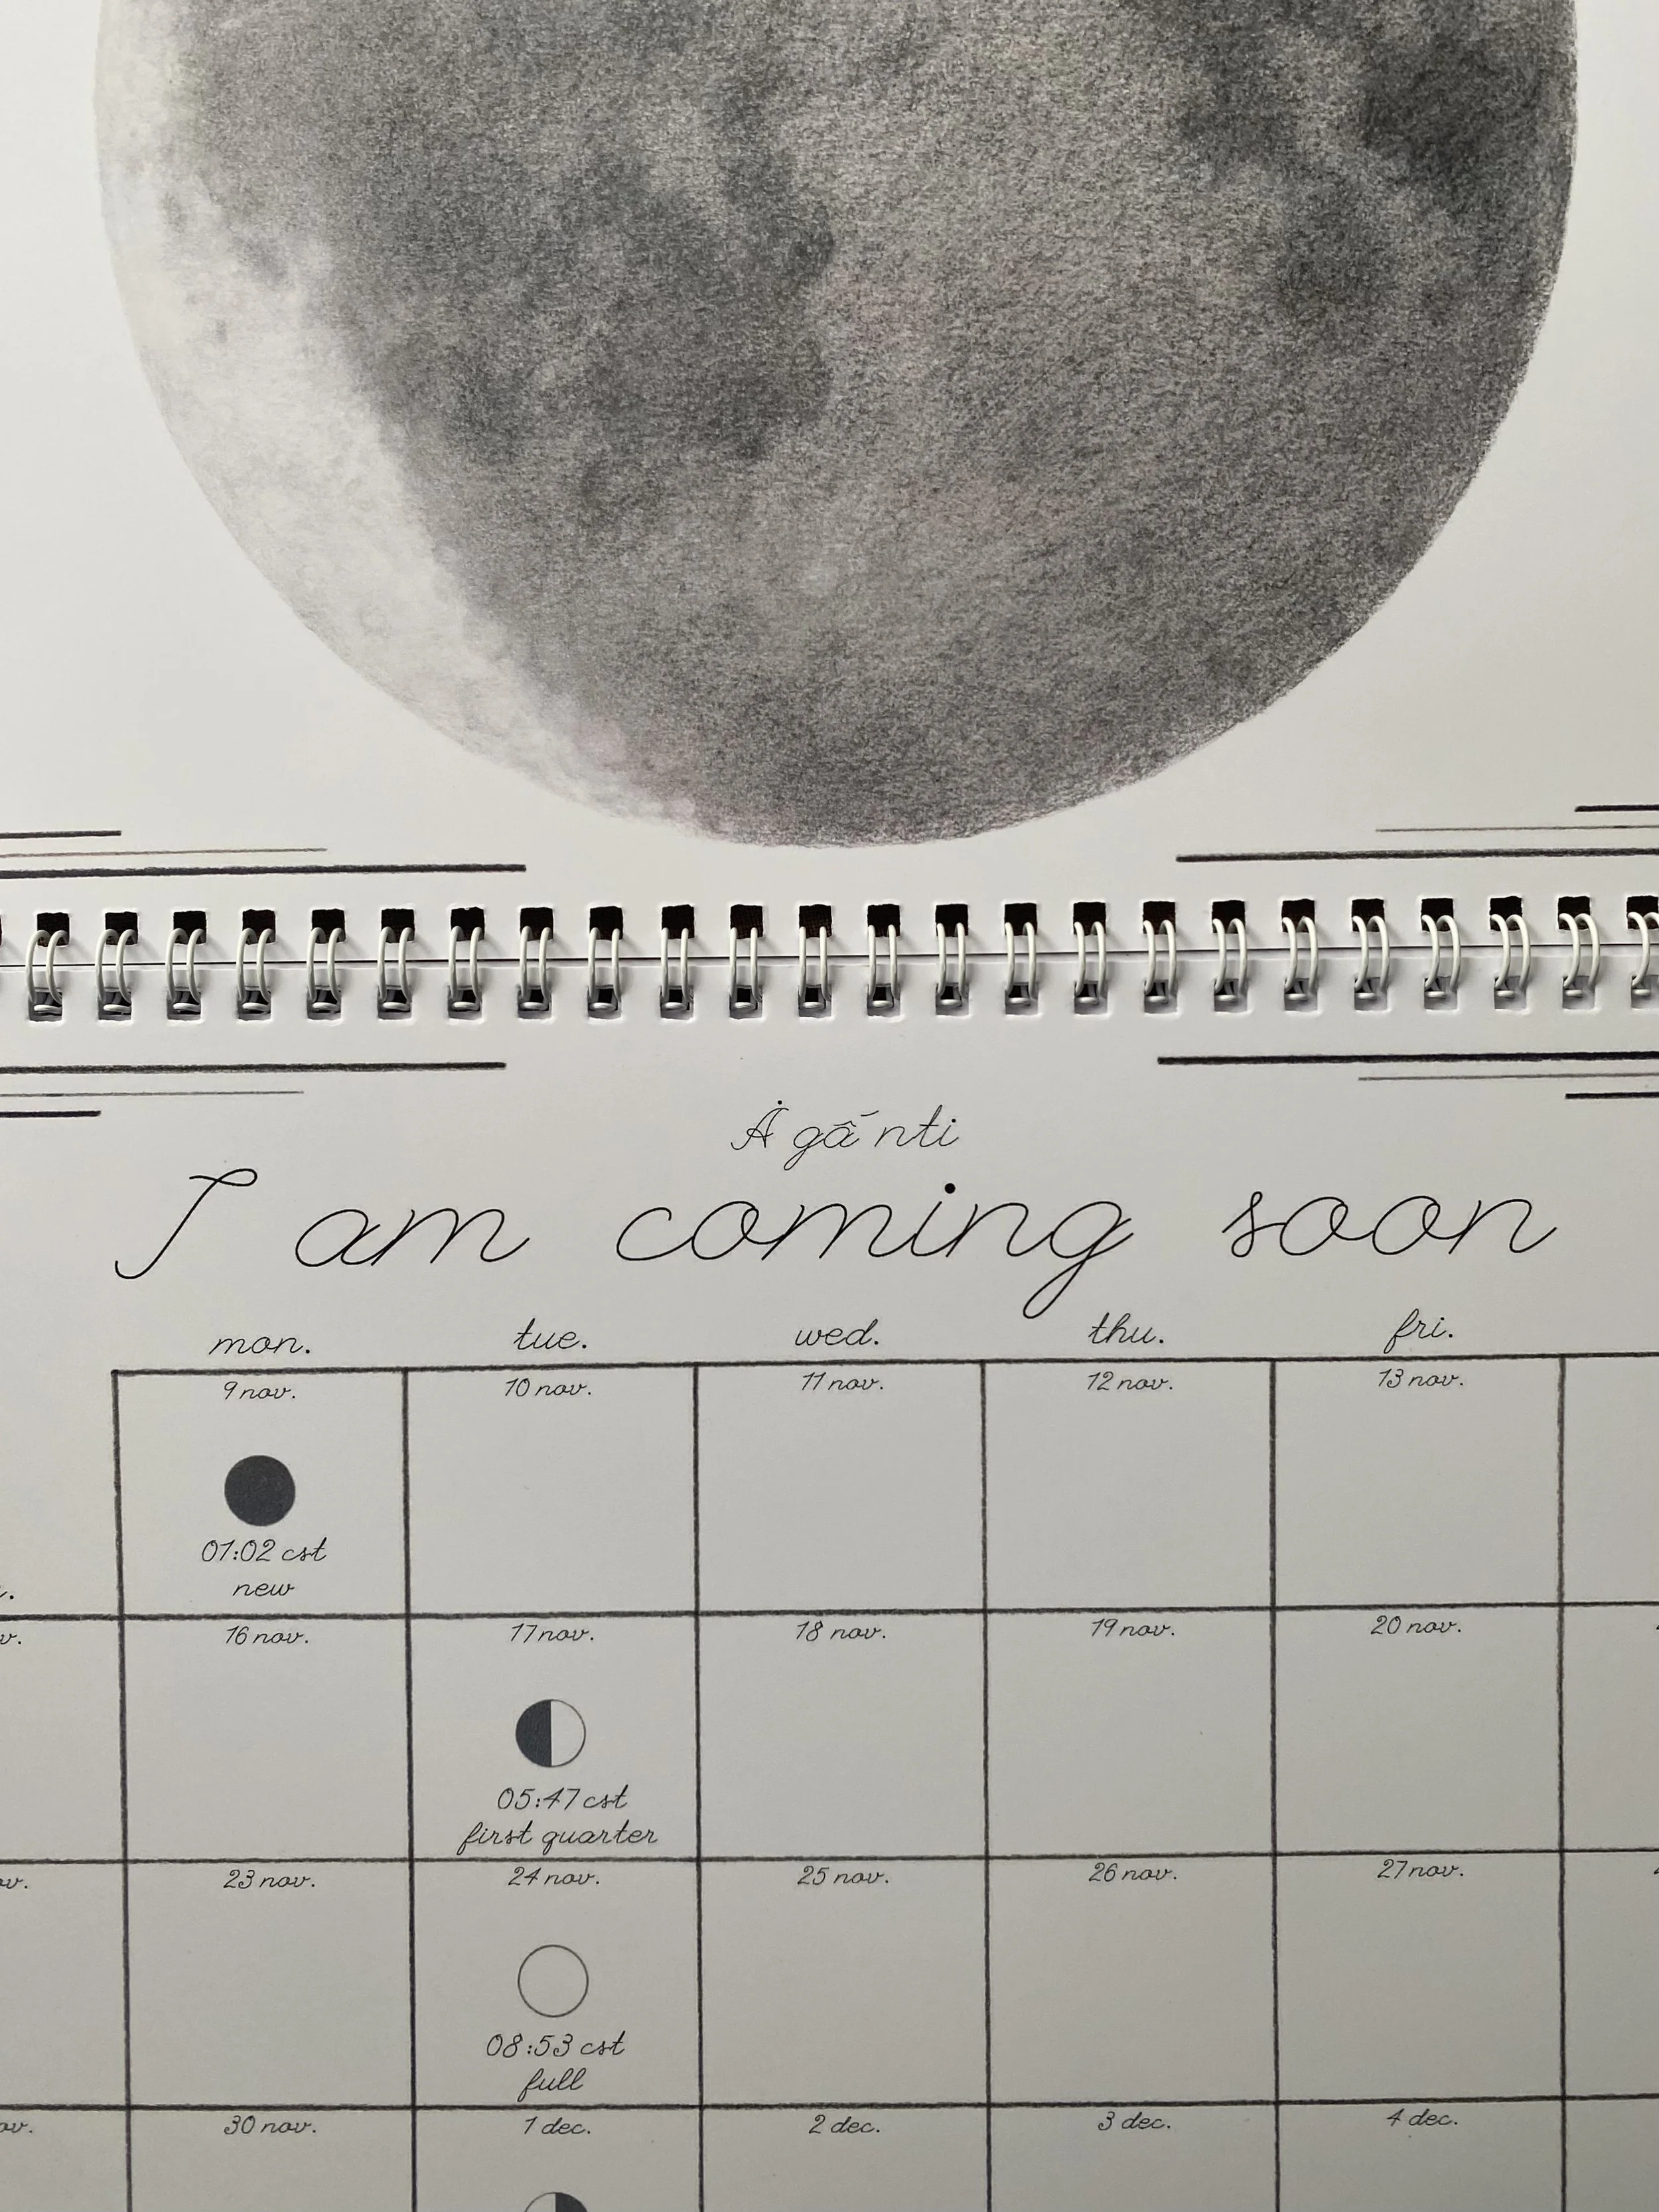 Ȧ gā́ nti
I am coming soon
mon. tue. wed. thu. fri.
9 nov. 10 nov. 11 nov. 12 nov. 13 nov.
01:02 cst
new
16 nov. 17 nov. 18 nov. 19 nov. 20 nov.
05:47 cst
first quarter
23 nov. 24 nov. 25 nov. 26 nov. 27 nov.
08:53 cst
full
30 nov. 1 dec. 2 dec. 3 dec. 4 dec.